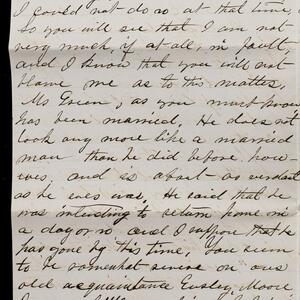 I could not do so at that time,
so you will see that I am not
very much, if at all, in fault,
and I know that you will not
blame me as to this matter.
Mr Green, as you must know
has been married. He does not
look any more like a married
man than he did before how-
ever, and is about as verdant
as he ever was. He said that he
was intending to return home in
a day or so and I suppose that he
has gone by this time. You seem
to be somewhat severe on our
old acquaintance Ensley, Moore